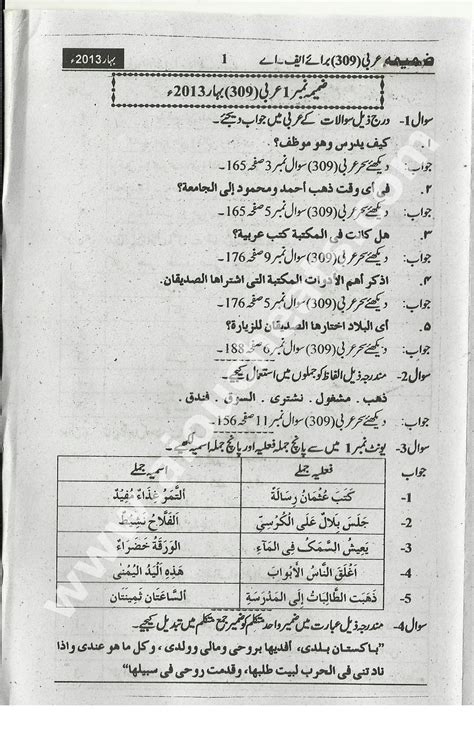 ضمیمہ عربی (309) برائے ایف۔اے 1 بہار 2013ء
ضمیمہ نمبر 1 عربی (309) بہار 2013ء
سوال 1- درج ذیل سوالات کے عربی میں جواب دیجئے۔
۱. كيف يدرس وهو موظف؟
جواب: دیکھئے سحر عربی (309) سوال نمبر 3 صفحہ 165۔
۲. فى أى وقت ذهب أحمد ومحمود إلى الجامعة؟
جواب: دیکھئے سحر عربی (309) سوال نمبر 5 صفحہ 165۔
۳. هل كانت فى المكتبة كتب عربية؟
جواب: دیکھئے سحر عربی (309) سوال نمبر 9 صفحہ 176۔
۴. اذكر أهم الأدوات المكتبة التى اشتراها الصديقان.
جواب: دیکھئے سحر عربی (309) سوال نمبر 5 صفحہ 176۔
۵. أى البلاد اختارها الصديقان للزيارة؟
جواب: دیکھئے سحر عربی (309) سوال نمبر 6 صفحہ 188۔
سوال 2- مندرجہ ذیل الفاظ کو جملوں میں استعمال کیجیے۔
ذهب . مشغول . نشترى . السوق . فندق .
جواب: دیکھئے سحر عربی (309) سوال نمبر 11 صفحہ 156۔
سوال 3- یونٹ نمبر 1 میں سے پانچ جملہ فعلیہ اور پانچ جملہ اسمیہ لکھیے۔
جواب فعلیہ جملے اسمیہ جملے
1- كَتَبَ عُثْمَانُ رِسَالَةً اَلتَّمَرُ غِذَاءٌ مُفِيْدٌ
2- جَلَسَ بِلَالٌ عَلَى الْكُرْسِيِّ اَلْفَلَّاحُ نَشِيْطٌ
3- يَعِيْشُ السَّمَكُ فِى الْمَآءِ اَلْوَرَقَةُ خَضْرَاءُ
4- اَغْلَقَ النَّاسُ الْأَبْوَابَ هٰذِهِ اَلْيَدُ الْيُمْنٰى
5- ذَهَبَتِ الطَّالِبَاتُ إِلَى الْمَدْرَسَةِ اَلسَّاعَتَانِ ثَمِيْنَتَانِ
سوال 4- مندرجہ ذیل عبارت میں ضمیر واحد متکلم کو ضمیر جمع متکلم میں تبدیل کیجیے۔
"باكستان بلدى، أفديها بروحى ومالى وولدى، وكل ما هو عندى واذا
نادتنى فى الحرب لبيت طلبها، وقدمت روحى فى سبيلها"